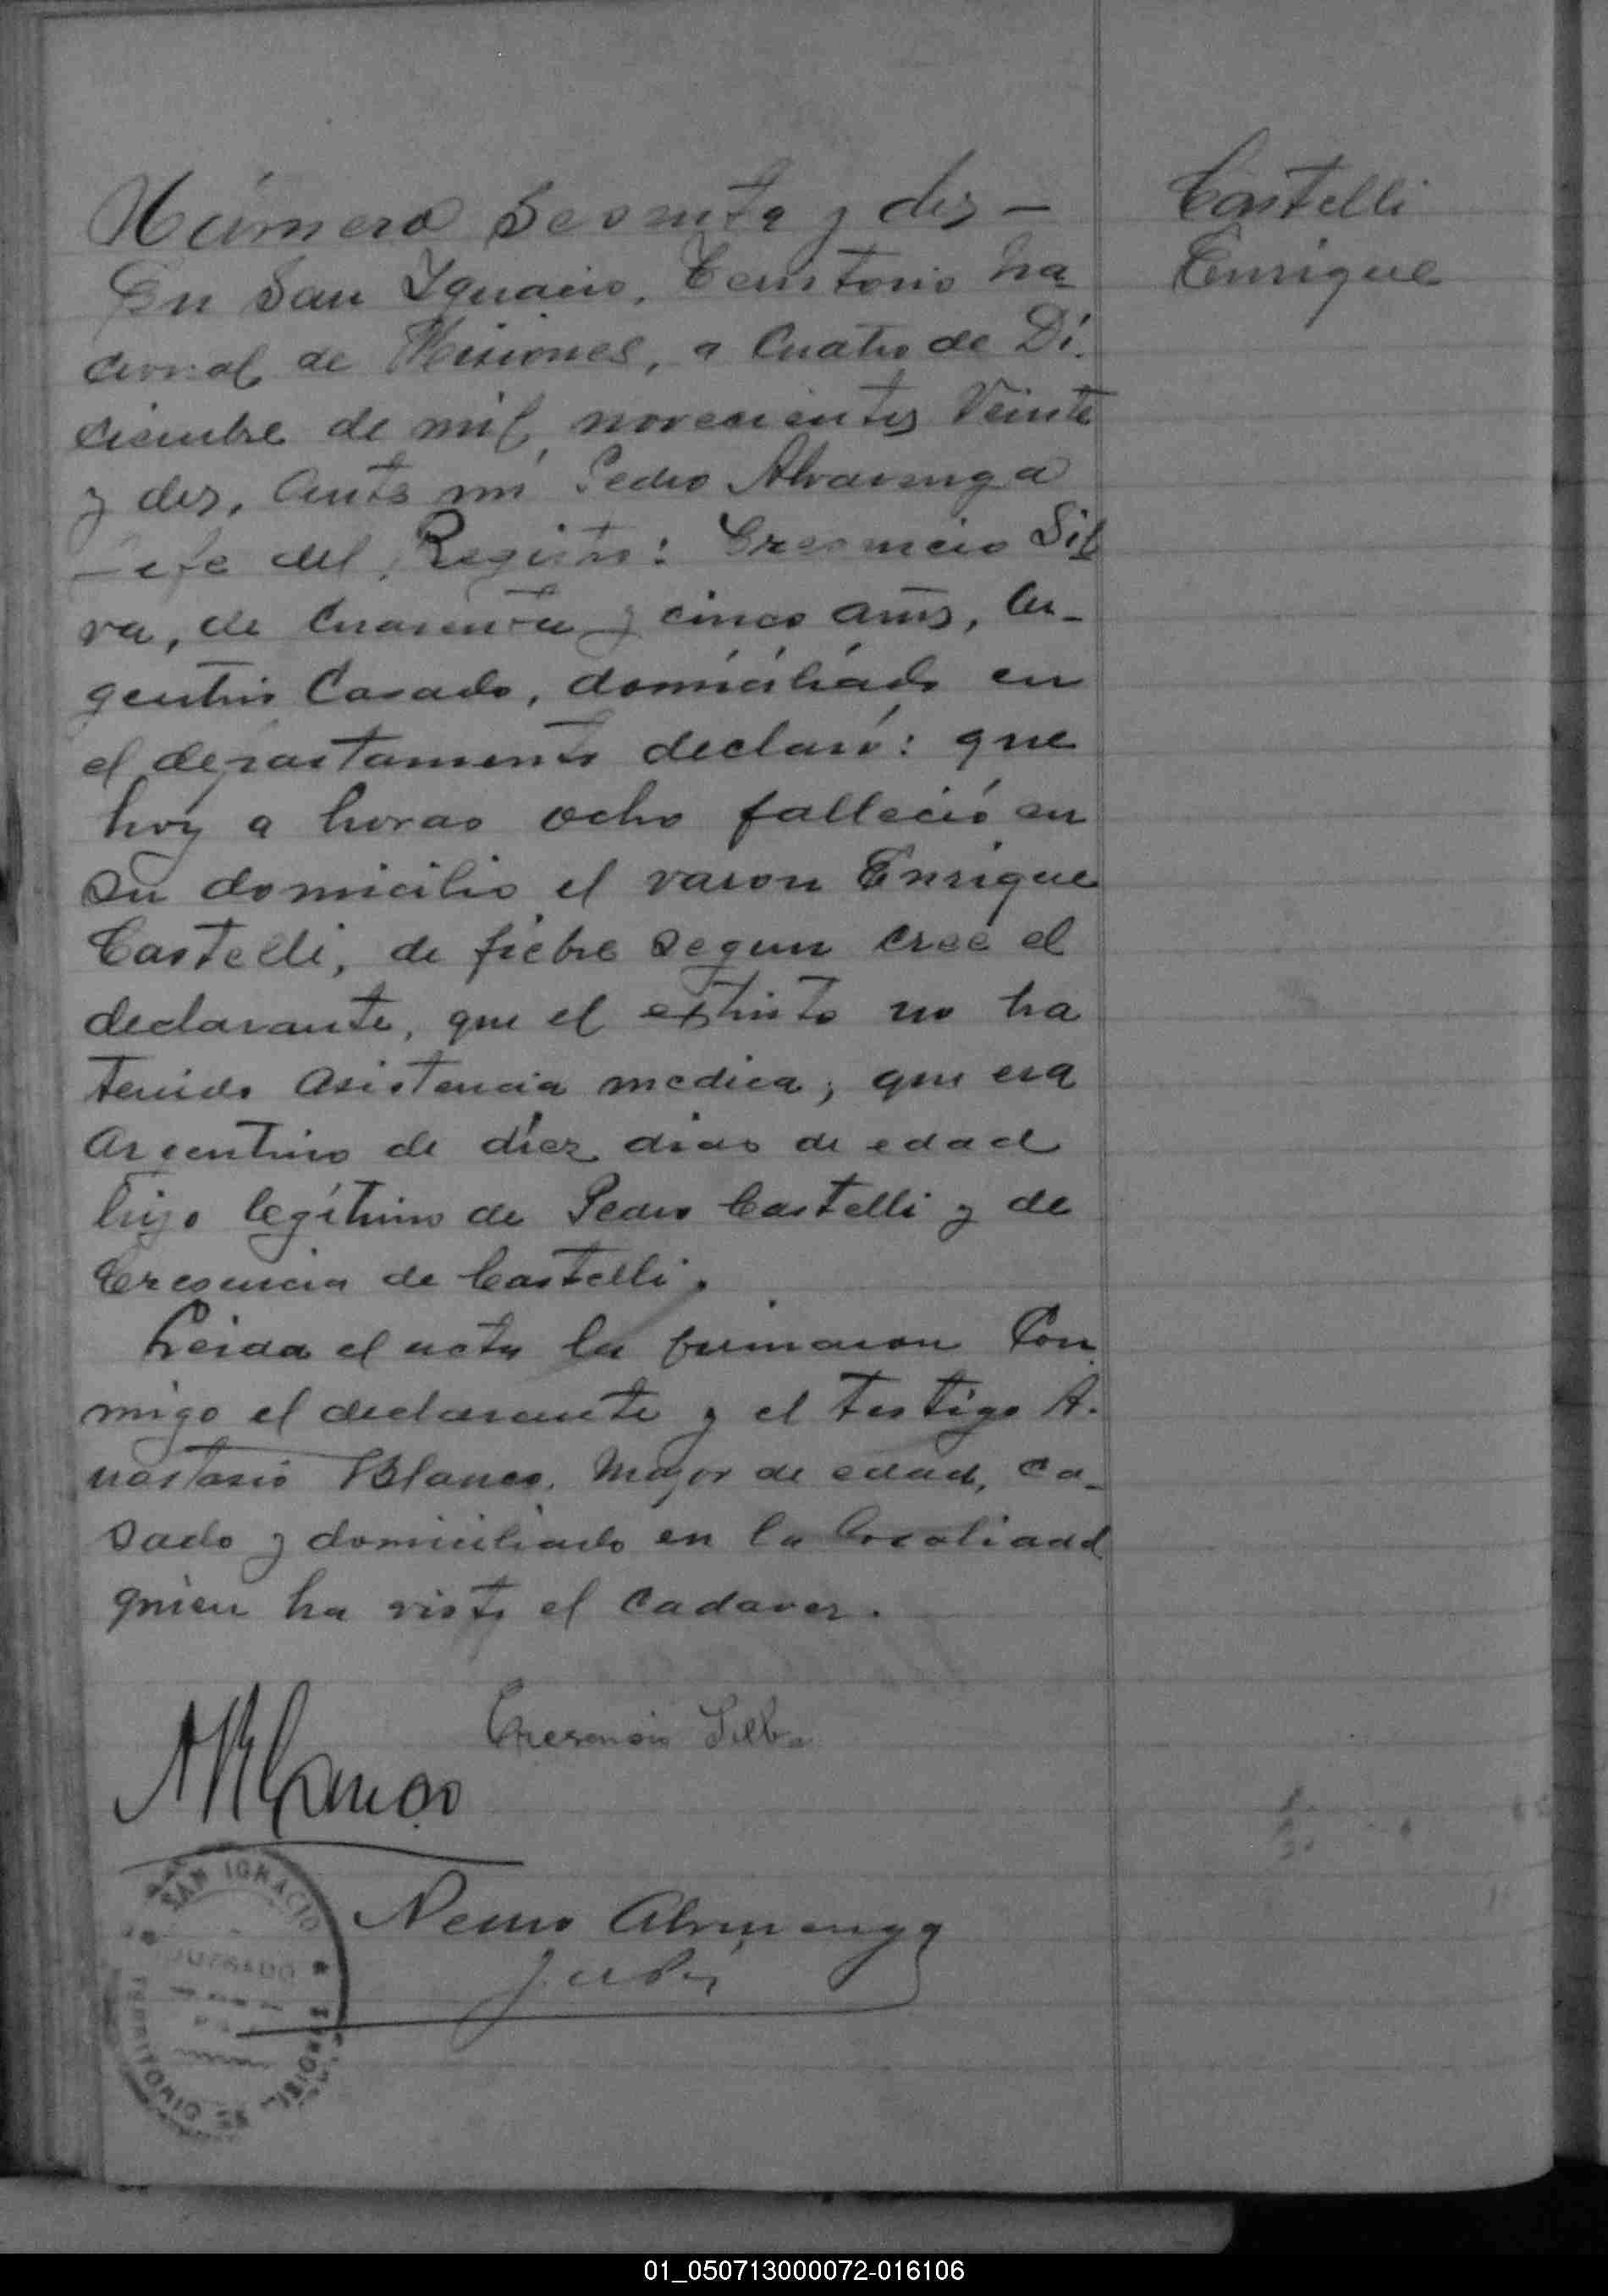 Número Sesenta y dos —
Castelli
Enrique
En San Ygnacio, Territorio na
cional de Misiones, a Cuatro de Di.
ciembre de mil novecientos Veinte
y dos, Ante mi Pedro Alvarenga
Jefe del Registro: Cresencio Sil
va, de Cuarenta y cinco años, Ar-
gentino Casado, domiciliado en
el departamento declaró: que
hoy a horas ocho falleció en
su domicilio el varon Enrique
Castelli, de fiebre segun cree el
declarante, que el extinto no ha
tenido asistencia medica; que era
Argentino de diez dias de edad
hijo legítimo de Pedro Castelli y de
Cresencia de Castelli.
Leida el acta la firmaron Con
migo el declarante y el testigo A.
nastasio Blanco. Mayor de edad, ca-
sado y domiciliado en la localidad
quien ha visto el cadaver.
Cresencio Silba
ABlanco
SAN IGNACIO
JUZGADO
TERRITORIO DE MISIONES
Pedro Alvarenga
01_050713000072-016106